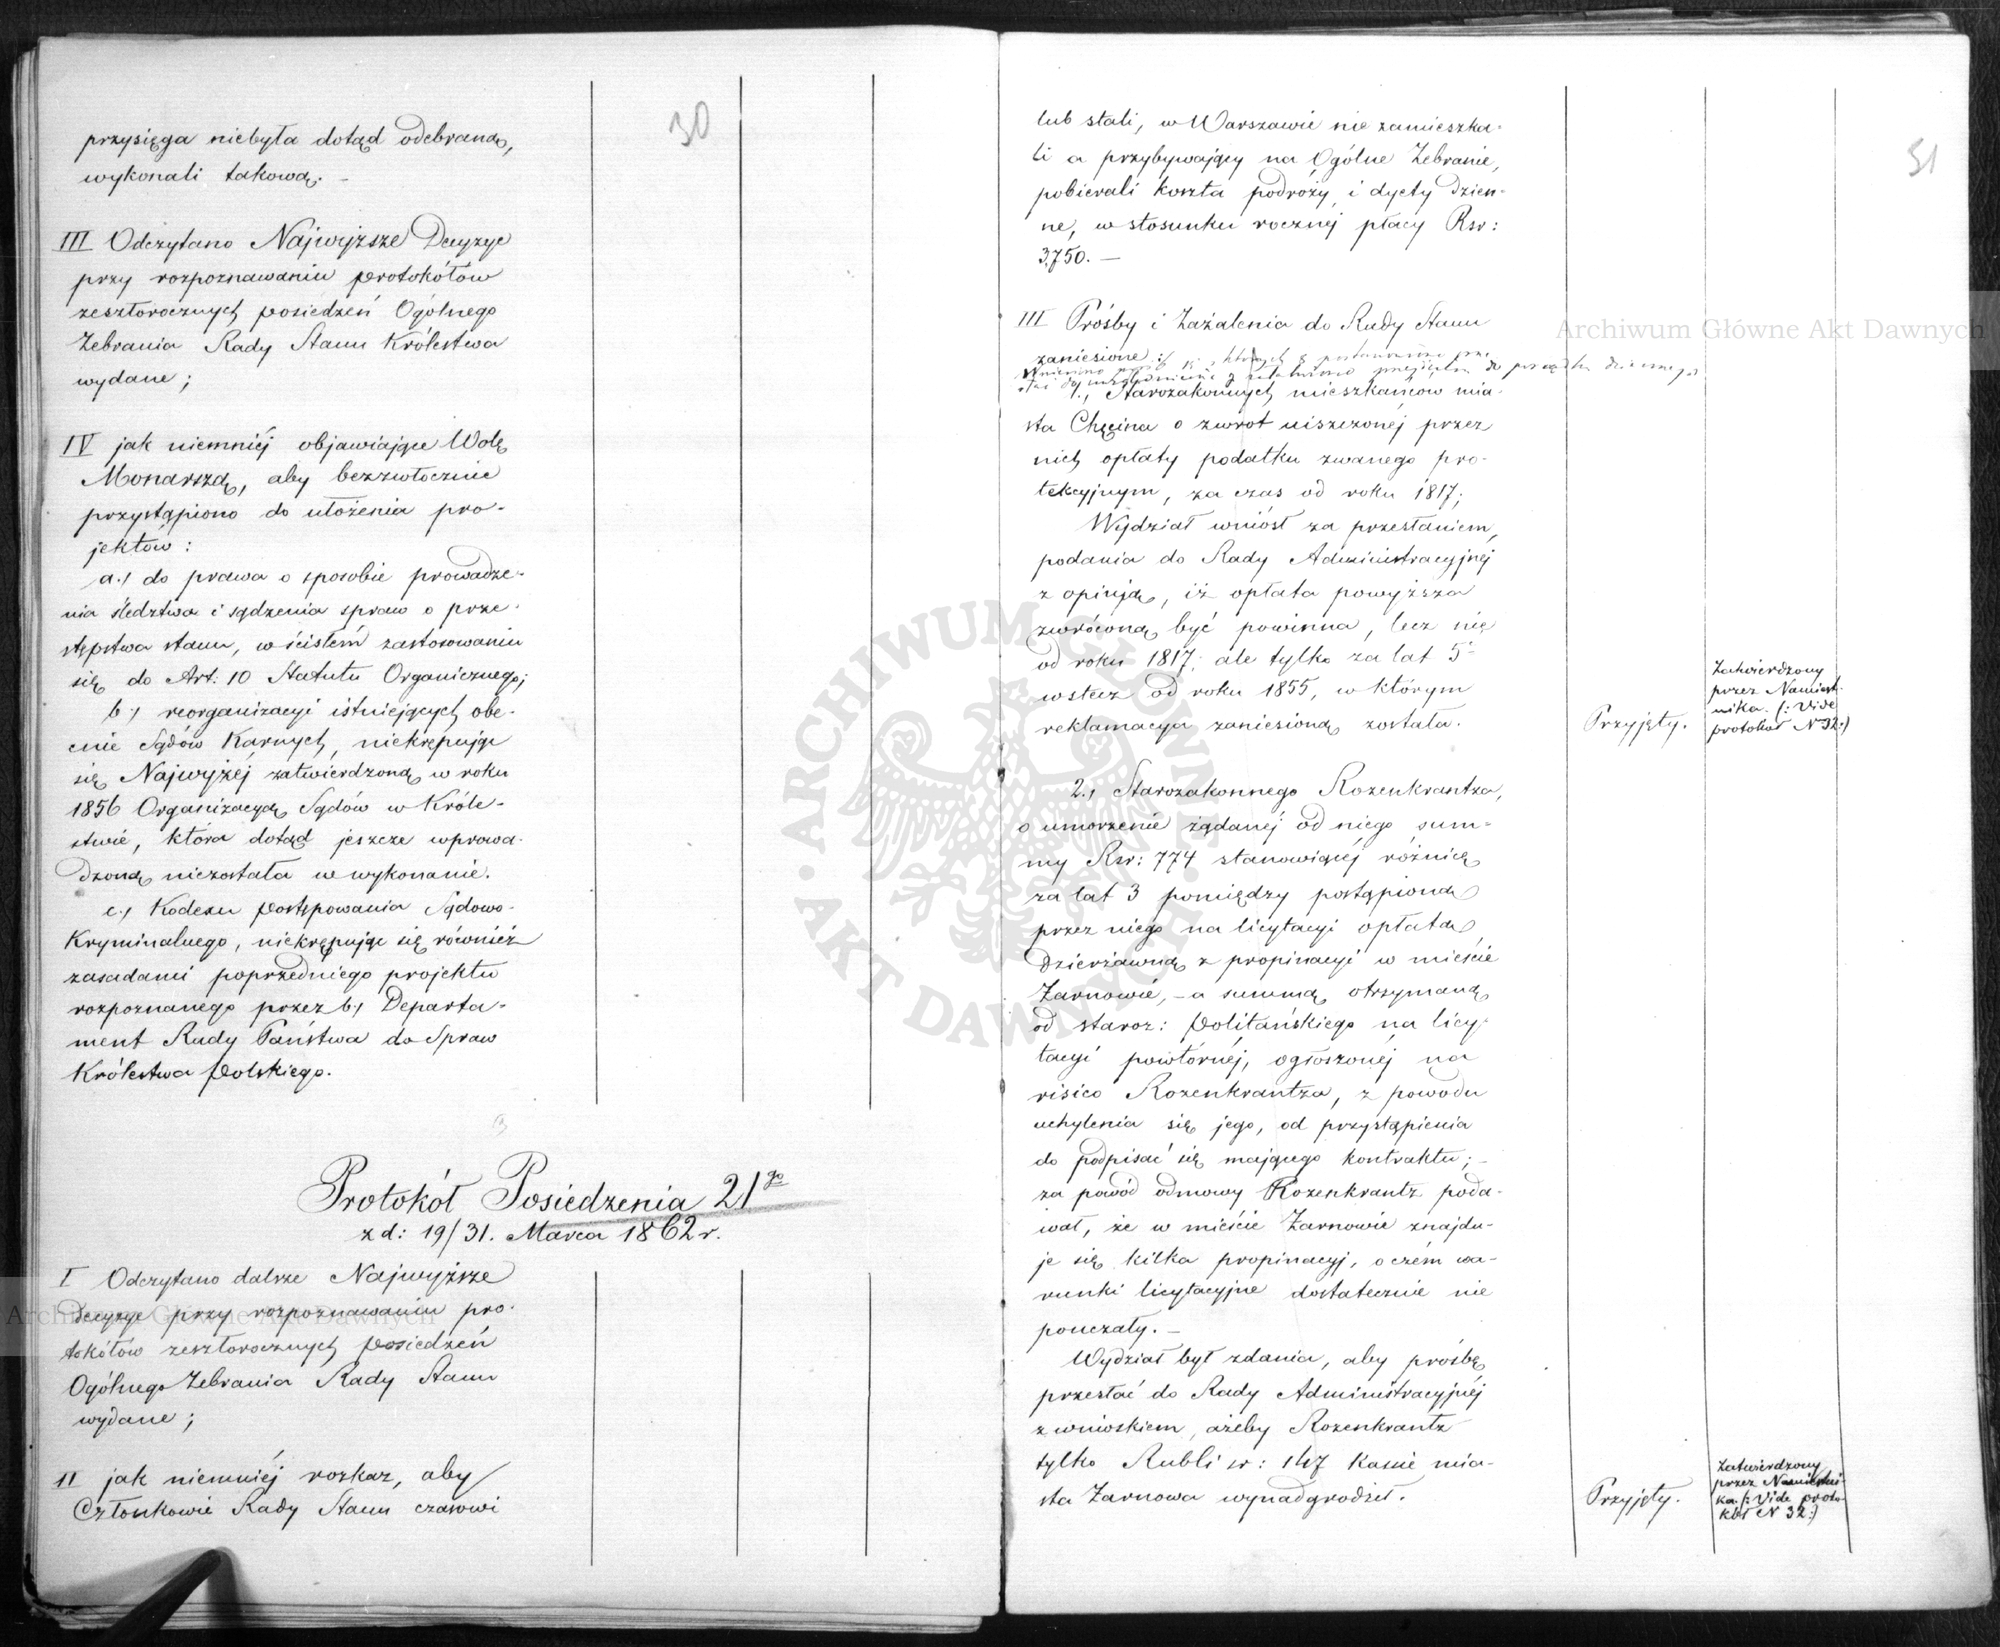 30
przysięga niebyła dotąd odebraną,
wykonali takową. –
III Odczytano Najwyższe Decyzye
przy rozpoznawaniu protokółów
zeszłorocznych posiedzeń Ogólnego
Zebrania Rady Stanu Królestwa
wydane;
IV jak niemniéj objawiające Wolę
Monarszą, aby bezzwłocznie
przystąpiono do ułożenia pro-
jektów:
a./ do prawa o sposobie prowadze-
nia śledztwa i sądzenia spraw o prze-
stępstwa stanu, w ścisłém zastosowaniu
się do Art: 10 Statutu Organicznego;
b./ reorganizacyi istniejących obe-
cnie Sądów Karnych, niekrępując
się Najwyżéj zatwierdzoną w roku
1856 Organizacyą Sądów w Króle-
stwie, która dotąd jeszcze wprowa-
dzoną niezostała w wykonanie.
c./ Kodexu postępowania Sądowo-
Kryminalnego, niekrępując się również
zasadami poprzedniego projektu
rozpoznanego przez b./ Departa-
ment Rady Państwa do Spraw
Królestwa Polskiego.
Protokół Posiedzenia 21go
z d: 19/31. Marca 1862 r.
I Odczytano dalsze Najwyższe
decyzye przy rozpoznawaniu pro-
tokółów zeszłorocznych posiedzeń
Ogólnego Zebrania Rady Stanu
wydane;
II jak niemniéj rozkaz, aby
Członkowie Rady Stanu czasowi
31
lub stali, w Warszawie nie zamieszka-
li a przybywający na Ogólne Zebranie,
pobierali koszta podróży i dyety dzien-
ne, w stosunku rocznej płacy Rsr:
3,750. –
III Prośby i Zażalenia do Rady Stanu
zaniesione:
do porządku dziennego
1., Starozakonnych mieszkańców mia-
sta Chęcina o zwrot uiszczonéj przez
nich opłaty podatku zwanego pro-
tekcyjnym, za czas od roku 1817;
Wydział wniósł za przesłaniem
podania do Rady Administracyjnéj
z opinją, iż opłata powyższa
zwróconą być powinna, lecz nie
od roku 1817, ale tylko za lat 5
wstecz od roku 1855, w którym
reklamacya zaniesioną została.
Przyjęty.
Zatwierdzony
przez Namiest-
nika. (: Vide
protokół N 32:)
2., Starozakonnego Rozenkrantza,
o umorzenie żądanéj od niego sum-
my Rsr: 774 stanowiącéj różnicę
za lat 3 pomiędzy postąpioną
przez niego na licytacyi opłatą
dzierżawną z propinacyi w mieście
Żarnowie, – a summą otrzymaną
od staroz: Politańskiego na licy-
tacyi powtórnéj, ogłoszonéj na
risico Rozenkrantza, z powodu
uchylenia się jego, od przystąpienia
do podpisać się mającego kontraktu; –
za powód odmowy Rozenkrantz poda-
wał, że w mieście Żarnowie znajdu-
je się kilka propinacyj, o czém wa-
runki licytacyjne dostatecznie nie
pouczały. –
Wydział był zdania, aby prośbę
przesłać do Rady Administracyjnéj
z wnioskiem, ażeby Rozenkrantz
tylko Rubli sr: 147 kassie mia-
sta Żarnowa wynadgrodził.
Przyjęty.
Zatwierdzony
przez Namiestni-
ka. (: Vide proto-
kół N 32:)
Archiwum Główne Akt Dawnych
Archiwum Główne Akt Dawnych
ARCHIWUM GŁÓWNE AKT DAWNYCH